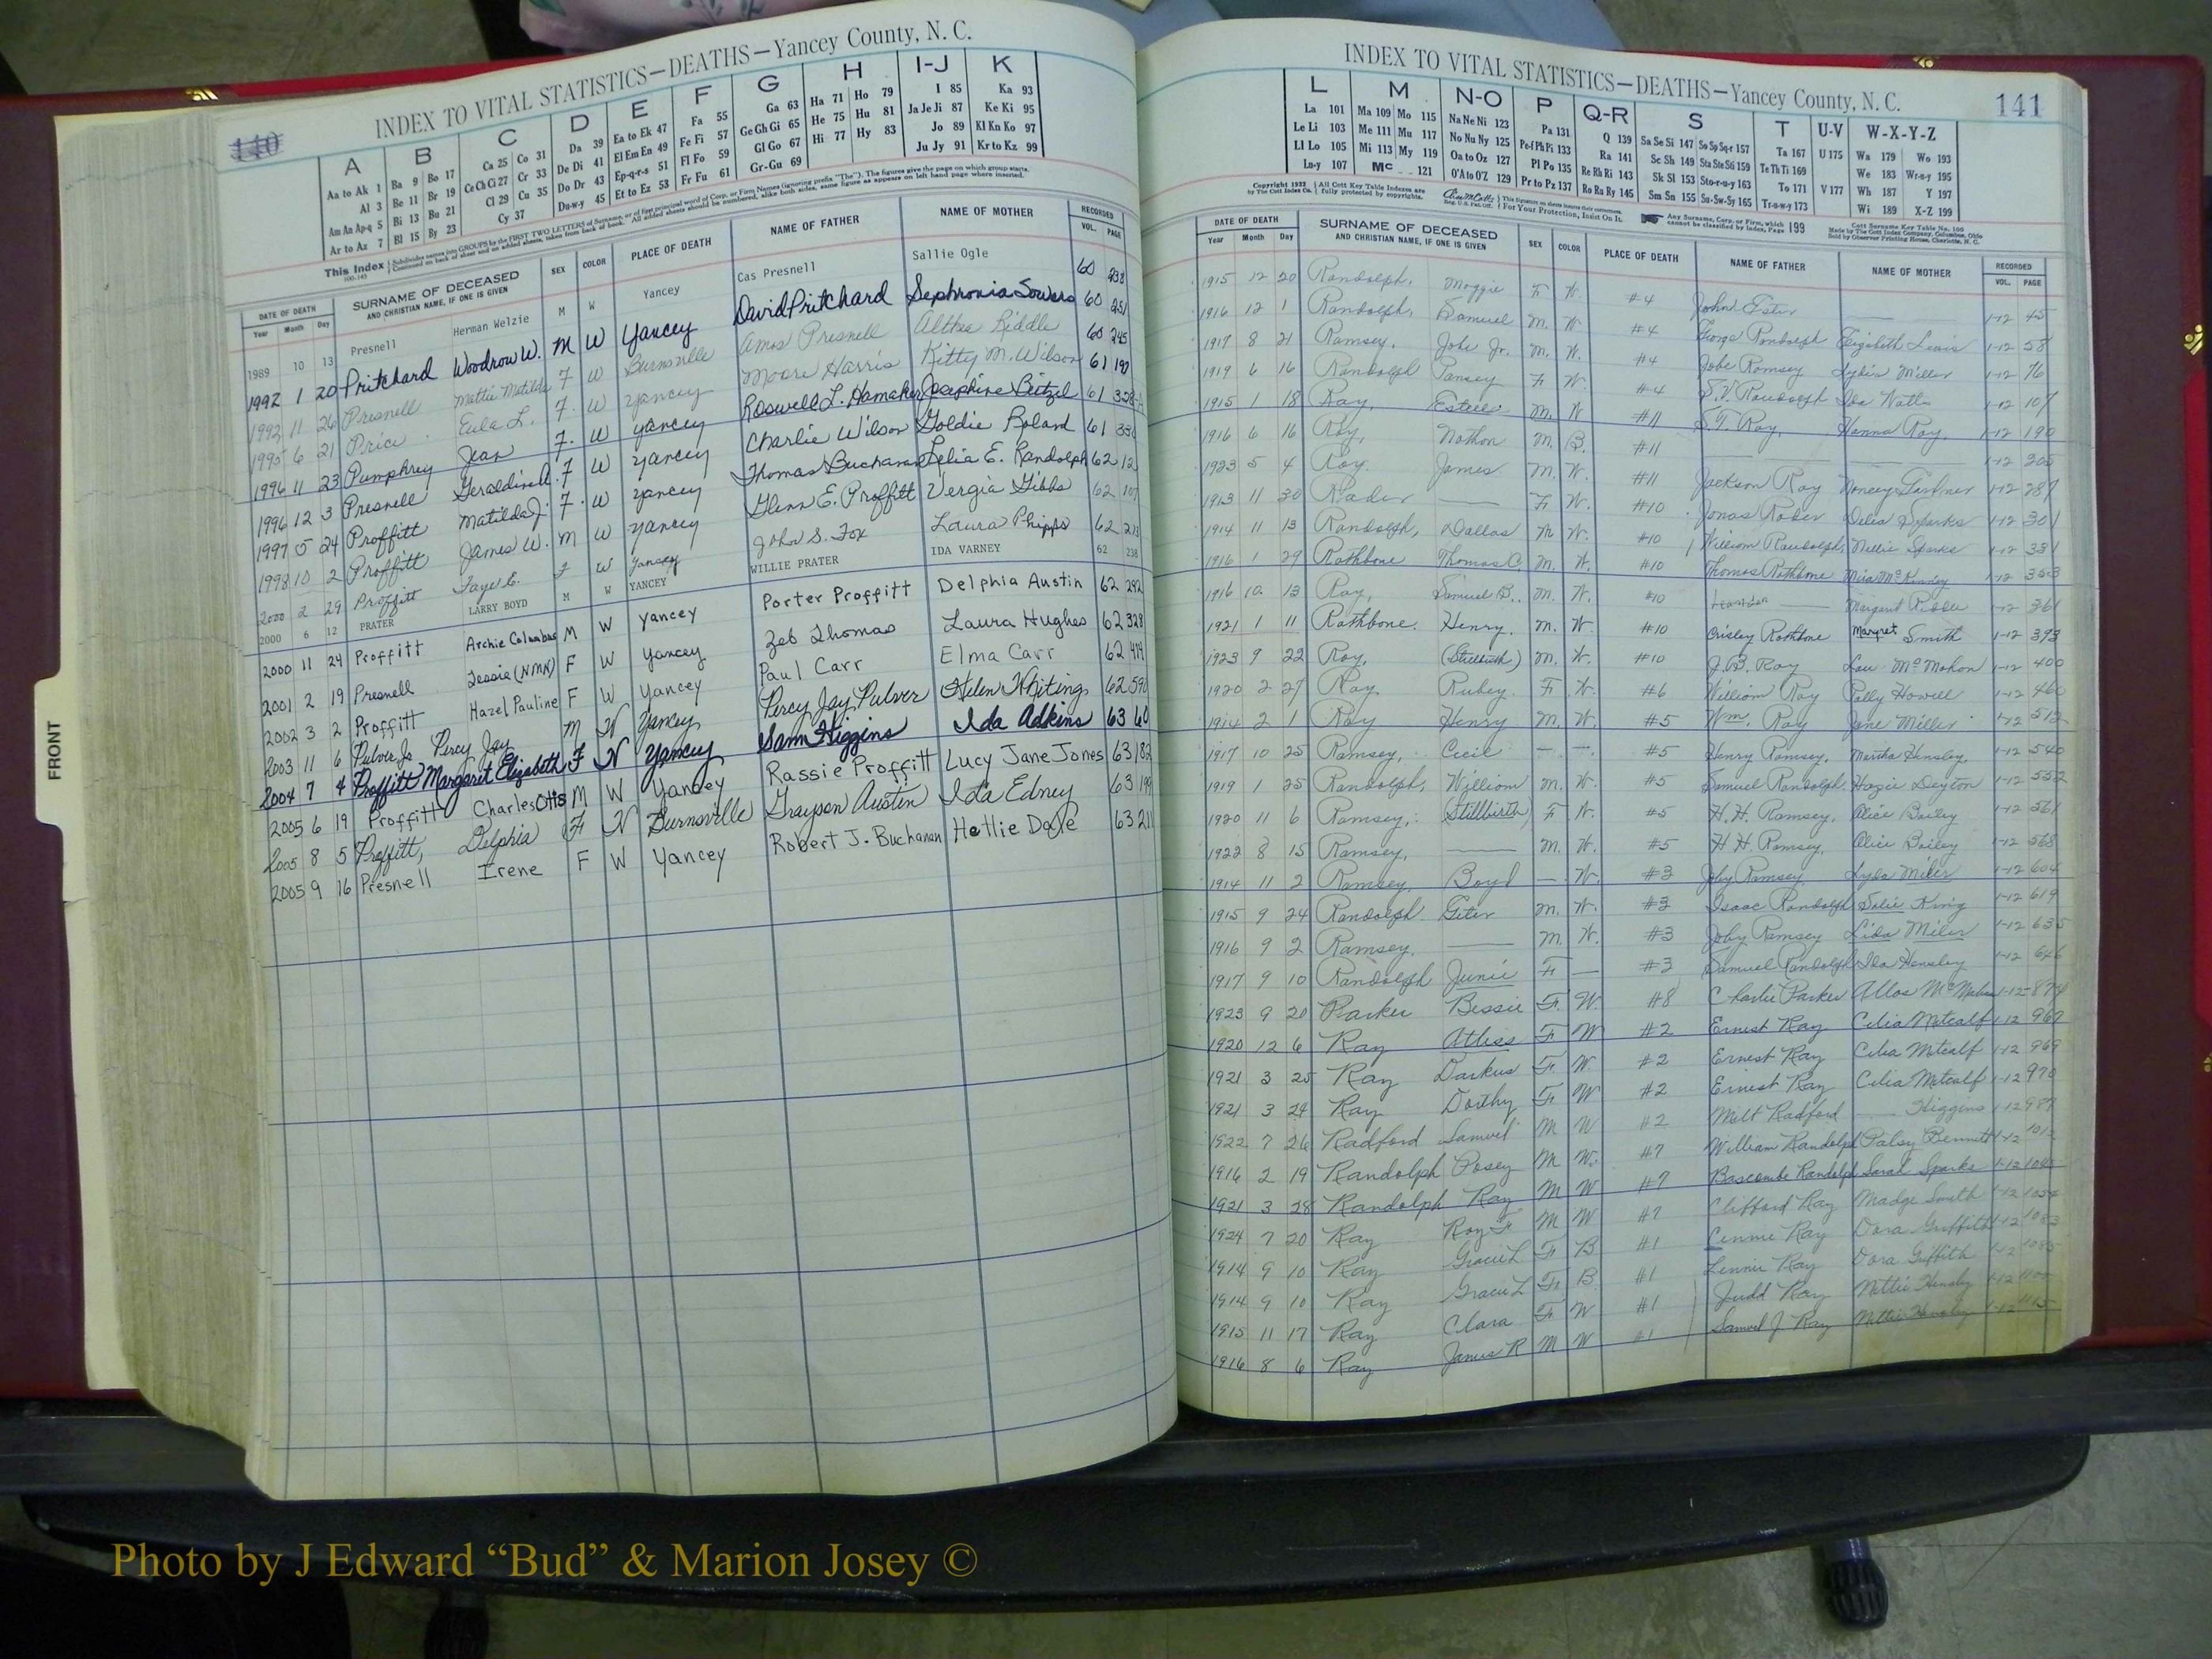 140
INDEX TO VITAL STATISTICS—DEATHS—Yancey County, N. C.
A B C D E F G H I-J K
Aa to Ak 1 Ba 9 Bo 17 Ca 25 Co 31 Da 39 Ea to Ek 47 Fa 55 Ga 63 Ha 71 Ho 79 I 85 Ka 93
Al 3 Be 11 Br 19 Ce Ch Ci 27 Cr 33 De Di 41 El Em En 49 Fe Fi 57 Ge Gh Gi 65 He 75 Hu 81 Ja Je Ji 87 Ke Ki 95
Am An Ap-q 5 Bi 13 Bu 21 Cl 29 Cu 35 Do Dr 43 Ep-q-r-s 51 Fl Fo 59 Gl Go 67 Hi 77 Hy 83 Jo 89 Kl Kn Ko 97
Ar to Az 7 Bl 15 By 23 Cy 37 Du-w-y 45 Et to Ez 53 Fr Fu 61 Gr-Gu 69 Ju Jy 91 Kr to Kz 99
DATE OF DEATH SURNAME OF DECEASED SEX COLOR PLACE OF DEATH NAME OF FATHER NAME OF MOTHER RECORDED
Year Month Day AND CHRISTIAN NAME, IF ONE IS GIVEN VOL. PAGE
1989 10 13 Presnell Herman Welzie M W Yancey Cas Presnell Sallie Ogle 60 238
1992 1 20 Pritchard Woodrow W. M W Yancey David Pritchard Sephronia Sowers 60 251
1992 11 26 Presnell Mattie Matilda F W Burnsville Amos Presnell Althea Riddle 60 245
1995 6 21 Price Eula L. F. W Yancey Moore Harris Kitty M. Wilson 61 190
1996 11 23 Pumphrey Jean F. W Yancey Roswell L. Hamaker Josephine Beitzel 61 328-A
1996 12 3 Presnell Geraldine A. F W Yancey Charlie Wilson Goldie Roland 61 330
1997 5 24 Proffitt Matilda J. F. W Yancey Thomas Buchanan Lelia E. Randolph 62 12
1998 10 2 Proffitt James W. M W Yancey Glenn E. Proffitt Vergia Gibbs 62 107
2000 2 29 Proffitt Faye E. F W Yancey John S. Fox Laura Phipps 62 213
2000 6 12 PRATER LARRY BOYD M W YANCEY WILLIE PRATER IDA VARNEY 62 238
2000 11 24 Proffitt Archie Columbus M W Yancey Porter Proffitt Delphia Austin 62 292
2001 2 19 Presnell Jessie (NMN) F W Yancey Zeb Thomas Laura Hughes 62 328
2002 3 2 Proffitt Hazel Pauline F W Yancey Paul Carr Elma Carr 62 474
2003 11 6 Pulver Jr Percy Jay M W Yancey Percy Jay Pulver Helen Whiting 62 590
2004 7 4 Proffitt Margaret Elizabeth F W Yancey Sam Higgins Ida Adkins 63 60
2005 6 19 Proffitt Charles Otis M W Yancey Rassie Proffitt Lucy Jane Jones 63 182
2005 8 5 Proffitt, Delphia F W Burnsville Grayson Austin Ida Edney 63 199
2005 9 16 Presnell Irene F W Yancey Robert J. Buchanan Hettie Dale 63 211
FRONT
INDEX TO VITAL STATISTICS—DEATHS—Yancey County, N. C. 141
L M N-O P Q-R S T U-V W-X-Y-Z
La 101 Ma 109 Mo 115 Na Ne Ni 123 Pa 131 Q 139 Sa Se Si 147 So Sp Sq-r 157 Ta 167 U 175 Wa 179 Wo 193
Le Li 103 Me 111 Mu 117 No Nu Ny 125 Pe-f Ph Pi 133 Ra 141 Sc Sh 149 Sta Ste Sti 159 Te Th Ti 169 We 183 Wr-s-y 195
Ll Lo 105 Mi 113 My 119 Oa to Oz 127 Pl Po 135 Re Rh Ri 143 Sk Sl 153 Sto-r-u-y 163 To 171 V 177 Wh 187 Y 197
Lu-y 107 Mc 121 O'A to O'Z 129 Pr to Pz 137 Ro Ru Ry 145 Sm Sn 155 Su-Sw-Sy 165 Tr-u-w-y 173 Wi 189 X-Z 199
DATE OF DEATH SURNAME OF DECEASED SEX COLOR PLACE OF DEATH NAME OF FATHER NAME OF MOTHER RECORDED
Year Month Day AND CHRISTIAN NAME, IF ONE IS GIVEN VOL. PAGE
1915 12 20 Randolph, Maggie F W. #4 John Ester 1-12 45
1916 12 1 Randolph, Samuel M. W #4 George Randolph Elizabeth Lewis 1-12 58
1917 8 21 Ramsey, Jobe Jr. M. W. #4 Jobe Ramsey Lydia Miller 1-12 76
1919 6 16 Randolph Pansey F W. #4 Randolph Ida Watts 1-12 107
1915 1 18 Ray, Estell M. W #11 S.T. Ray, Hanna Ray. 1-12 190
1916 6 16 Ray, Nathan M. B. #11 1-12 205
1923 5 4 Ray James M. W. #11 Jackson Ray Nancy Gardner 1-12 287
1913 11 30 Rader F. W. #10 Jonas Rader Delia Sparks 1-12 301
1914 11 13 Randolph, Dallas M W. #10 William Randolph, Nellie Sparks 1-12 331
1916 1 29 Rathbone Thomas C. M. W. #10 Thomas Rathbone McKinney 1-12 353
1916 10 13 Ray, Samuel B. M. W. #10 Margaret Riddle 1-12 361
1921 1 11 Rathbone. Henry. M. W. #10 Crisley Rathbone Margret Smith 1-12 393
1923 9 22 Ray, (Stillbirth) M. W. #10 J.B. Ray Lou McMahon 1-12 400
1920 2 27 Ray. Rubey. F W. #6 William Ray Polly Howell 1-12 460
1914 2 1 Ray Henry M. W. #5 Wm. Ray Jane Miller 1-12 512
1917 10 25 Ramsey, Cecil #5 Henry Ramsey, Martha Hensley, 1-12 540
1919 1 25 Randolph, William M. W. #5 Samuel Randolph. Hagie Deyton 1-12 552
1920 11 6 Ramsey, (Stillbirth) F W. #5 H.H. Ramsey, Alice Bailey 1-12 561
1922 8 15 Ramsey, M. W. #5 H H. Ramsey, Alice Bailey 1-12 568
1914 11 2 Ramsey, Boyd W. #3 Joby Ramsey Lyda Miler 1-12 604
1915 9 24 Randolph Geter M. W. #3 Isaac Randolph Salie King 1-12 619
1916 9 2 Ramsey. M. W. #3 Joby Ramsey Lida Miler 1-12 635
1917 9 10 Randolph Junie F #3 Samuel Randolph Ida Hensley 1-12 646
1923 9 20 Parker Bessie F. W. #8 Charlie Parker 1-12-874
1920 12 6 Ray Atliss F W #2 Ernest Ray Celia Metcalf 1-12 967
1921 3 25 Ray Darkus F. W #2 Ernest Ray Celia Metcalf 1-12 969
1921 3 24 Ray Dorthy F W #2 Ernest Ray Celia Metcalf 1-12 970
1922 7 26 Radford Samuel M W #2 Milt Radford Higgins 1-12 987
1916 2 19 Randolph Posey M W. #7 William Randolph Palsy Bennett 1-12
1921 3 28 Randolph Ray M W #7 Bascombe Randolph Sarah Sparks 1-12
1924 7 20 Ray Roy Jr M W #7 Clifford Ray Madge Smith 1-12
1914 9 10 Ray Gracie L F B #1 Lennie Ray Dora Griffith 1-12
1914 9 10 Ray Gracie L F B #1 Lennie Ray Dora Griffith 1-12
1915 11 17 Ray Clara F W #1 Judd Ray Nettie Hensley 1-12
1916 8 6 Ray James R M W #1 Samuel J. Ray Nettie Hensley 1-12
Photo by J Edward “Bud” & Marion Josey ©